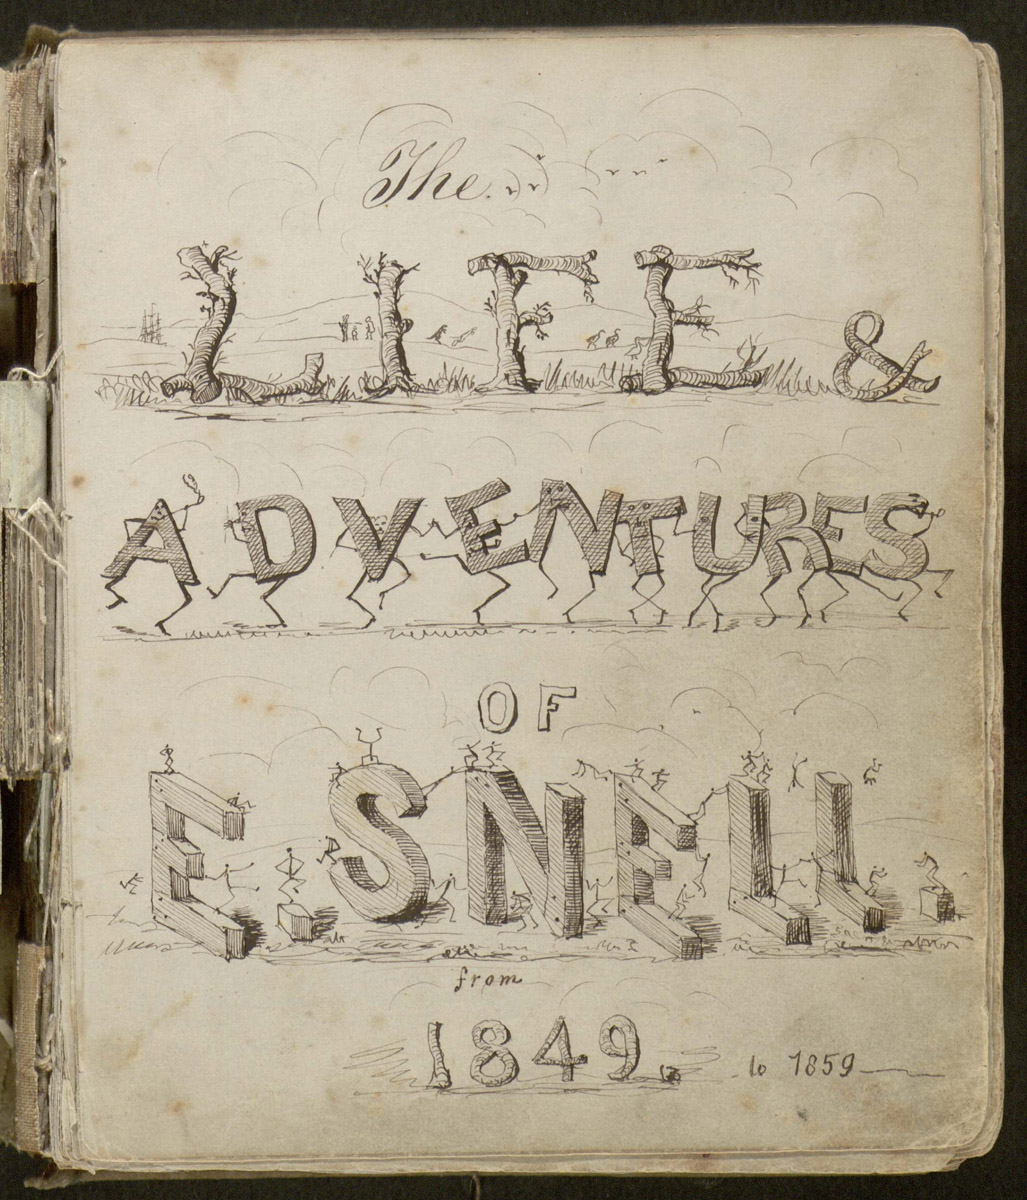 The
LIFE &
ADVENTURES
OF
E. SNELL.
from
1849. to 1859